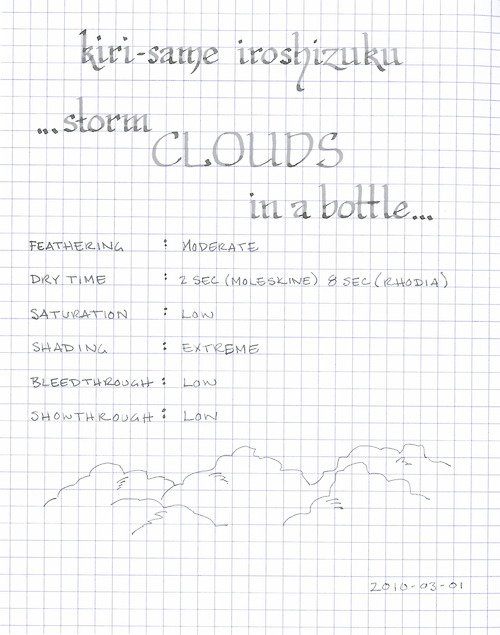 kiri-same iroshizuku
...storm
CLOUDS
in a bottle...
FEATHERING : MODERATE
DRY TIME : 2 SEC (MOLESKINE) 8 SEC (RHODIA)
SATURATION : LOW
SHADING : EXTREME
BLEEDTHROUGH : LOW
SHOWTHROUGH : LOW
2010-03-01